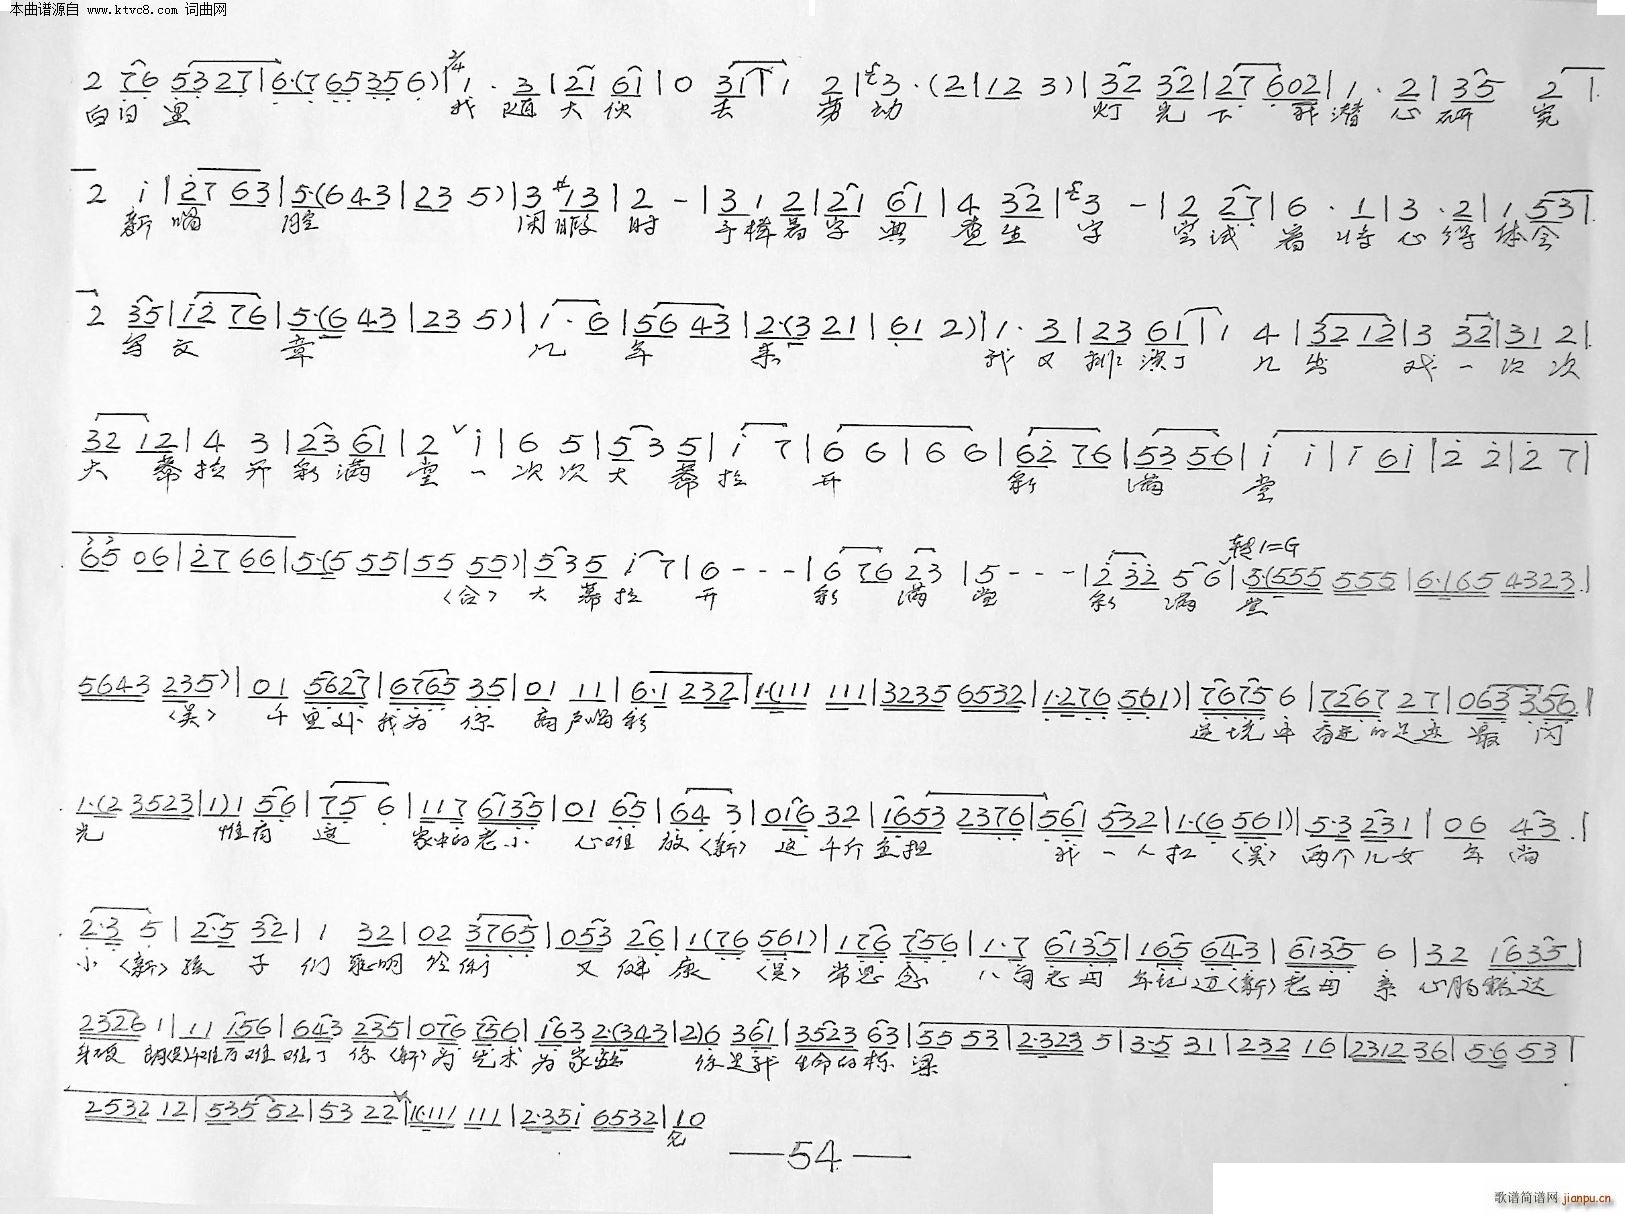 本曲谱源自 www.ktvc8.com 词曲网
2 76 5327 | 6·(7 65356) | 2/4 1 · 3 | 21 61 | 0 31 | 1 2 | 3 · (2 | 12 3) | 32 32 | 27 602 | 1 · 2 | 35 2 |
白日里 我 随 大 伙 去 劳 动 灯 光 下 我 潜 心 研 究
2 i | 27 63 | 5·(6 43 | 23 5) | 3 #13 | 2 - | 3 1 2 | 21 61 | 4 32 | 3 - | 2 27 | 6 · 1 | 3 · 2 | 1 53 |
新 唱 腔 闲 暇 时 手 捧 着 字 典 查 生 字 尝 试 着 将 心 得 体 会
2 35 | i2 76 | 5·(6 43 | 23 5) | i · 6 | 56 43 | 2·(3 21 | 61 2) | 1 · 3 | 23 61 | 1 4 | 32 12 | 3 32 | 31 2 |
写 文 章 几 年 来 我 又 排 演了 几 出 戏 一 次 次
32 12 | 4 3 | 23 61 | 2 ˅ i | 6 5 | 5 3 5 | i 7 | 6 6 | 6 6 | 62 76 | 53 56 | i i | i 6i | 2 2 | 2 7 |
大 幕 拉 开 彩 满 堂 一 次 次 大 幕 拉 开 彩 满 堂
65 06 | 27 66 | 5·(5 55 | 55 55) | 535 i 7 | 6 - - - | 6 76 23 | 5 - - - | 2 32 5 6 | 转1=G 5·(555 555 | 6·165 4323 |
〈合〉 大 幕 拉 开 彩 满 堂 彩 满 堂
5643 235) | 01 5627 | 6765 35 | 01 11 | 6·1 232 | 1·(111 111 | 3235 6532 | 1·276 561) | 7675 6 | 7267 27 | 063 356 |
〈吴〉 千 里外 我为 你 高声喝彩 这 些年 奋进的足迹 最 闪
1·(2 3523 | 1) 1 56 | 75 6 | 117 6135 | 01 65 | 64 3 | 016 32 | 1653 2376 | 561 532 | 1·(6 561) | 5·3 231 | 06 43 |
光 惟有 这 家中的老小 心难 放〈新〉 这 千斤重担 我 一 人 扛 〈吴〉 两个儿女 年 尚
2·3 5 | 2·5 32 | 1 32 | 02 3765 | 053 26 | 1(76 561) | 176 756 | 1·7 6135 | 165 643 | 6135 6 | 32 1635 |
小〈新〉孩 子 们 聪明 伶俐 又 健 康 〈吴〉 常思念 八旬老母 年纪迈〈新〉老母 亲 心胸豁达
2326 1 | 11 156 | 643 235 | 076 756 | 163 2·(343 | 2)6 361 | 3523 63 | 55 53 | 2·323 5 | 3·5 31 | 232 16 | 2312 36 | 5·6 53 |
难了 你〈新〉为 艺术 为家庭 你是我 生命的栋 梁
2532 12 | 535 52 | 53 22 | 1(·111 111 | 2·35i 6532 | 10
—54—
歌谱简谱网 jianpu.cn